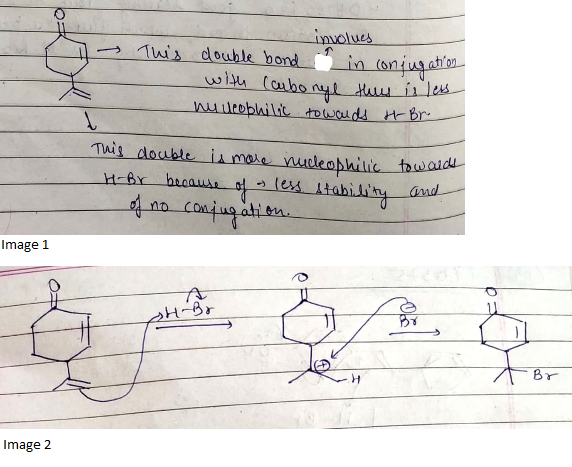 O
involves
→ This double bond in conjugation
with Carbonyl thus is less
nucleophilic towards H-Br.
This double is more nucleophilic towards
H-Br because of → less stability and
of no conjugation.
Image 1
O O O
H-Br Br
⊕ H Br
Image 2